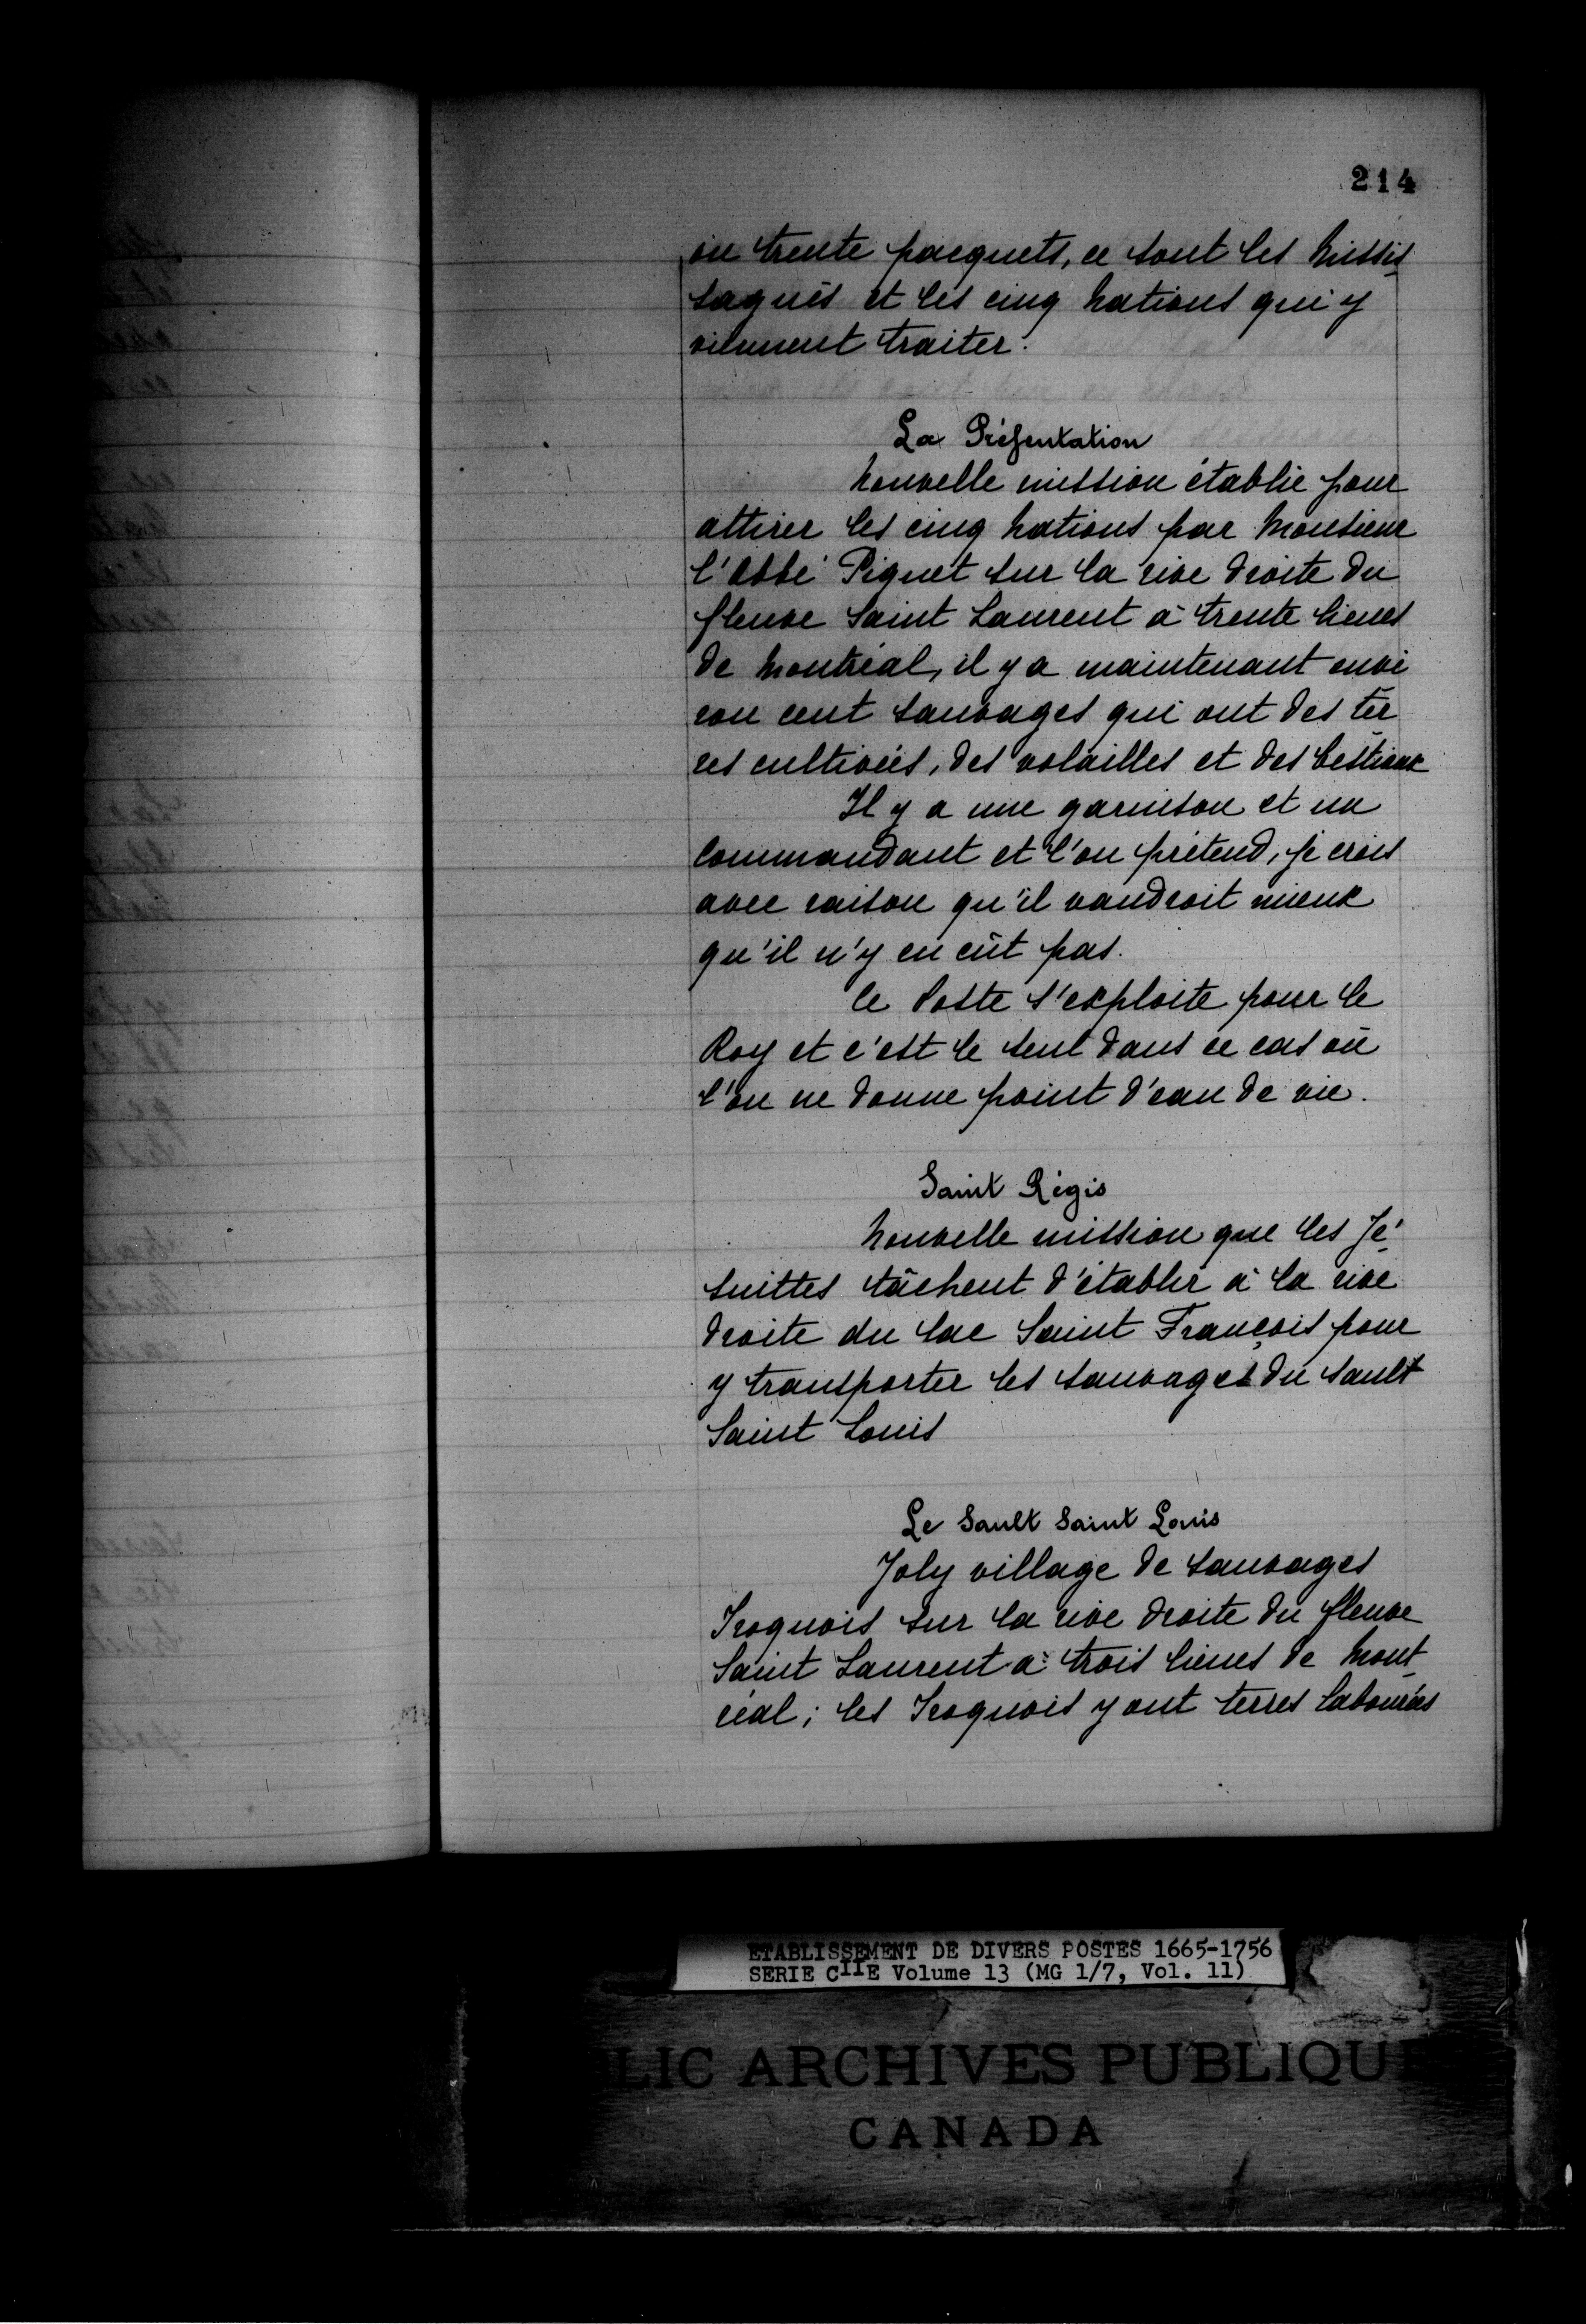 214
ou trente pacquets, ce sont les Missis
sagués et les cinq Nations qui y
viennent traiter.
La Présentation
Nouvelle mission établie pour
attirer les cinq Nations par Monsieur
l'Abbé Piquet sur la rive droite du
fleuve Saint Laurent à trente lieues
de Montréal, il y a maintenant envi
ron cent sauvages qui ont des ter
res cultivées, des volailles et des bestiaux
Il y a une garnison et un
Commandant et l'on prétend, je crois
avec raison qu'il vaudroit mieux
qu'il n'y en eût pas.
Ce Poste s'exploite pour le
Roy et c'est le seul dans ce cas où
l'on ne donne point d'eau de vie.
Saint Régis
Nouvelle mission que les Jé
suittes tâchent d'établir à la rive
droite du lac Saint François pour
y transporter les sauvages du Sault
Saint Louis
Le Sault Saint Louis
Joly village de sauvages
Iroquois sur la rive droite du fleuve
Saint Laurent à trois lieues de Mont
réal; les Iroquois y ont terres labourées
ETABLISSEMENT DE DIVERS POSTES 1665-1756
SERIE CIIE Volume 13 (MG 1/7, Vol. 11)
LIC ARCHIVES PUBLIQU
CANADA